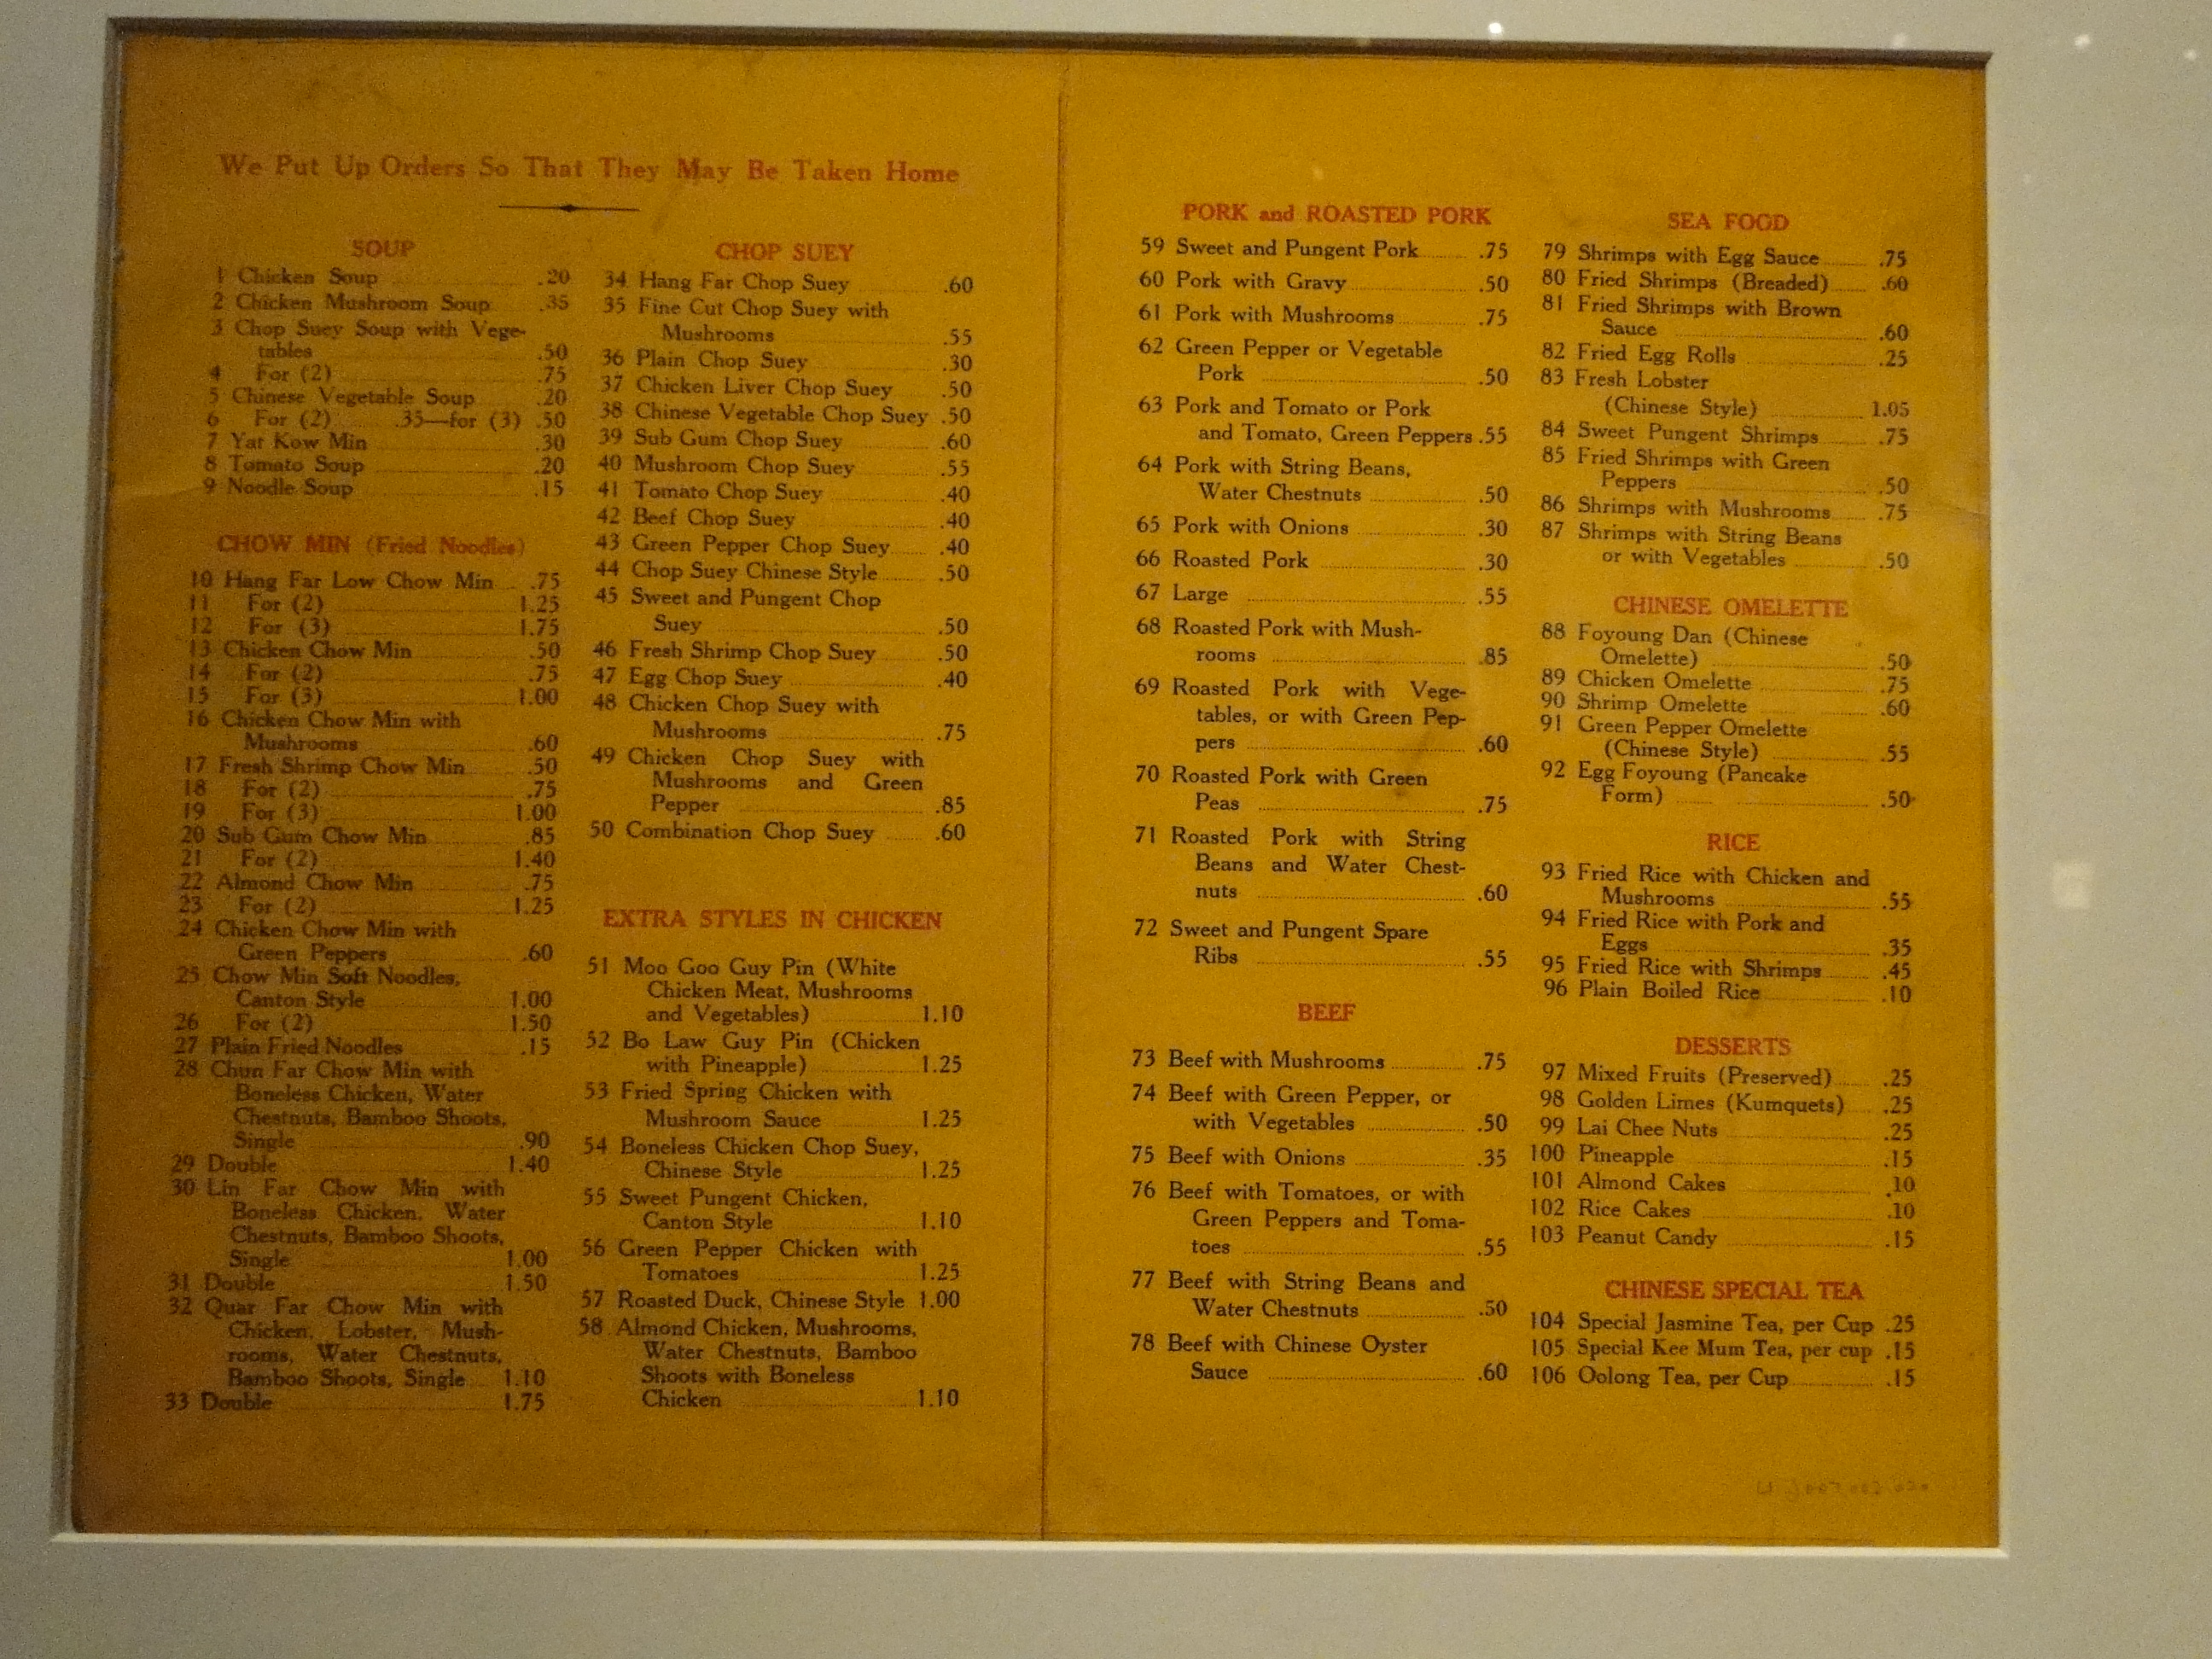 We Put Up Orders So That They May Be Taken Home
SOUP
1 Chicken Soup .20
2 Chicken Mushroom Soup .35
3 Chop Suey Soup with Vege-
tables .50
4 For (2) .75
5 Chinese Vegetable Soup .20
6 For (2) .35—for (3) .50
7 Yat Kow Min .30
8 Tomato Soup .20
9 Noodle Soup .15
CHOW MIN (Fried Noodles)
10 Hang Far Low Chow Min .75
11 For (2) 1.25
12 For (3) 1.75
13 Chicken Chow Min .50
14 For (2) .75
15 For (3) 1.00
16 Chicken Chow Min with
Mushrooms .60
17 Fresh Shrimp Chow Min .50
18 For (2) .75
19 For (3) 1.00
20 Sub Gum Chow Min .85
21 For (2) 1.40
22 Almond Chow Min .75
23 For (2) 1.25
24 Chicken Chow Min with
Green Peppers .60
25 Chow Min Soft Noodles,
Canton Style 1.00
26 For (2) 1.50
27 Plain Fried Noodles .15
28 Chun Far Chow Min with
Boneless Chicken, Water
Chestnuts, Bamboo Shoots,
Single .90
29 Double 1.40
30 Lin Far Chow Min with
Boneless Chicken, Water
Chestnuts, Bamboo Shoots,
Single 1.00
31 Double 1.50
32 Quar Far Chow Min with
Chicken, Lobster, Mush-
rooms, Water Chestnuts,
Bamboo Shoots, Single 1.10
33 Double 1.75
CHOP SUEY
34 Hang Far Chop Suey .60
35 Fine Cut Chop Suey with
Mushrooms .55
36 Plain Chop Suey .30
37 Chicken Liver Chop Suey .50
38 Chinese Vegetable Chop Suey .50
39 Sub Gum Chop Suey .60
40 Mushroom Chop Suey .55
41 Tomato Chop Suey .40
42 Beef Chop Suey .40
43 Green Pepper Chop Suey .40
44 Chop Suey Chinese Style .50
45 Sweet and Pungent Chop
Suey .50
46 Fresh Shrimp Chop Suey .50
47 Egg Chop Suey .40
48 Chicken Chop Suey with
Mushrooms .75
49 Chicken Chop Suey with
Mushrooms and Green
Pepper .85
50 Combination Chop Suey .60
EXTRA STYLES IN CHICKEN
51 Moo Goo Guy Pin (White
Chicken Meat, Mushrooms
and Vegetables) 1.10
52 Bo Law Guy Pin (Chicken
with Pineapple) 1.25
53 Fried Spring Chicken with
Mushroom Sauce 1.25
54 Boneless Chicken Chop Suey,
Chinese Style 1.25
55 Sweet Pungent Chicken,
Canton Style 1.10
56 Green Pepper Chicken with
Tomatoes 1.25
57 Roasted Duck, Chinese Style 1.00
58 Almond Chicken, Mushrooms,
Water Chestnuts, Bamboo
Shoots with Boneless
Chicken 1.10
PORK and ROASTED PORK
59 Sweet and Pungent Pork .75
60 Pork with Gravy .50
61 Pork with Mushrooms .75
62 Green Pepper or Vegetable
Pork .50
63 Pork and Tomato or Pork
and Tomato, Green Peppers .55
64 Pork with String Beans,
Water Chestnuts .50
65 Pork with Onions .30
66 Roasted Pork .30
67 Large .55
68 Roasted Pork with Mush-
rooms .85
69 Roasted Pork with Vege-
tables, or with Green Pep-
pers .60
70 Roasted Pork with Green
Peas .75
71 Roasted Pork with String
Beans and Water Chest-
nuts .60
72 Sweet and Pungent Spare
Ribs .55
BEEF
73 Beef with Mushrooms .75
74 Beef with Green Pepper, or
with Vegetables .50
75 Beef with Onions .35
76 Beef with Tomatoes, or with
Green Peppers and Toma-
toes .55
77 Beef with String Beans and
Water Chestnuts .50
78 Beef with Chinese Oyster
Sauce .60
SEA FOOD
79 Shrimps with Egg Sauce .75
80 Fried Shrimps (Breaded) .60
81 Fried Shrimps with Brown
Sauce .60
82 Fried Egg Rolls .25
83 Fresh Lobster
(Chinese Style) 1.05
84 Sweet Pungent Shrimps .75
85 Fried Shrimps with Green
Peppers .50
86 Shrimps with Mushrooms .75
87 Shrimps with String Beans
or with Vegetables .50
CHINESE OMELETTE
88 Foyoung Dan (Chinese
Omelette) .50
89 Chicken Omelette .75
90 Shrimp Omelette .60
91 Green Pepper Omelette
(Chinese Style) .55
92 Egg Foyoung (Pancake
Form) .50
RICE
93 Fried Rice with Chicken and
Mushrooms .55
94 Fried Rice with Pork and
Eggs .35
95 Fried Rice with Shrimps .45
96 Plain Boiled Rice .10
DESSERTS
97 Mixed Fruits (Preserved) .25
98 Golden Limes (Kumquets) .25
99 Lai Chee Nuts .25
100 Pineapple .15
101 Almond Cakes .10
102 Rice Cakes .10
103 Peanut Candy .15
CHINESE SPECIAL TEA
104 Special Jasmine Tea, per Cup .25
105 Special Kee Mum Tea, per cup .15
106 Oolong Tea, per Cup .15